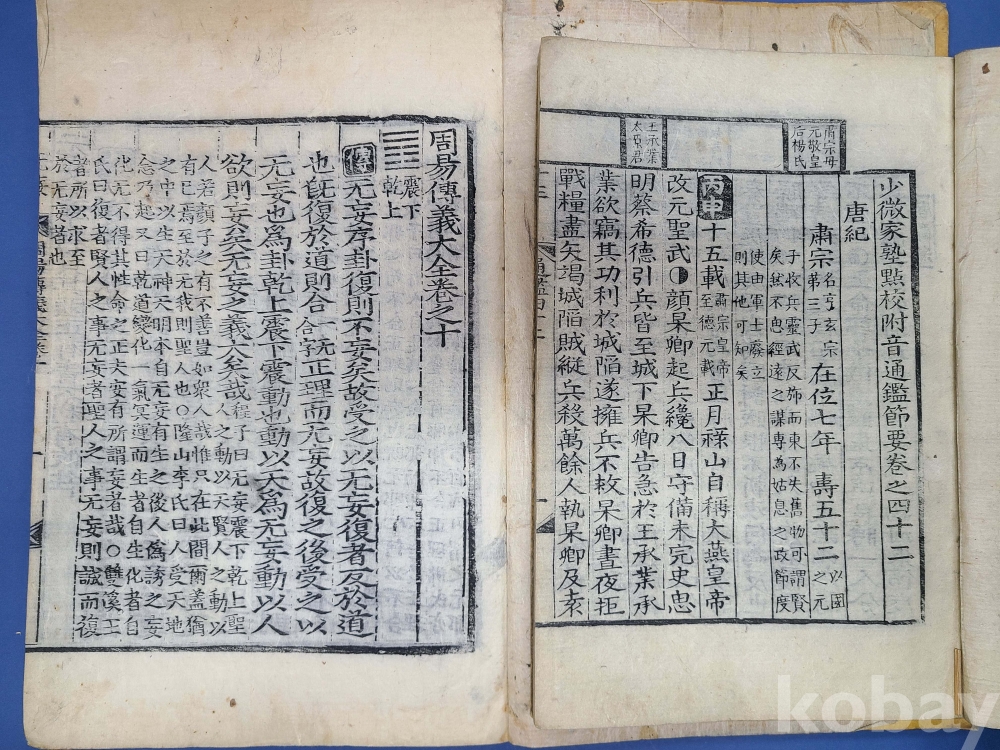 少微家塾點校附音通鑑節要卷之四十二
唐紀
肅宗名亨玄宗第三子在位七年 壽五十二以國之元
子收兵靈武反斾而東不失舊物可謂賢
矣然不思經遠之謀專為姑息之政節度
使由軍士廢立
則其他可知矣
丙申十五載肅宗皇帝至德元載正月祿山自稱大燕皇帝
改元聖武○顔杲卿起兵纔八日守備未完史思
明蔡希德引兵皆至城下杲卿告急於王承業承
業欲竊其功利於城陷遂擁兵不救杲卿晝夜拒
戰糧盡矢渴城陷賊縱兵殺萬餘人執杲卿及袁
肅宗母
元敬皇
后楊氏
王承業
周易傳義大全卷之十
震下
乾上
傳无妄序卦復則不妄矣故受之以无妄復者反於道
也旣復於道則合正理而无妄故復之後受之以
无妄也爲卦乾上震下震動也動以天爲无妄動以人
欲則妄矣无妄之義大矣哉程子曰无妄震下乾上聖人之動以天賢人之動以
人若顔子之有不善豈如衆人哉惟只在此間爾蓋猶
有已焉至於无我則聖人也○隆山李氏曰人受天地
之中以生天神天明本自无妄有生之後人僞誘之妄
念乃起又曰乾道變化一氣冥運而生者自生化者自
化无不得其性命之正夫安有所謂妄者哉○雙溪王
氏曰復者賢人之事无妄者聖人之事无妄則誠而復
者所以求至
於无妄者也
kobay